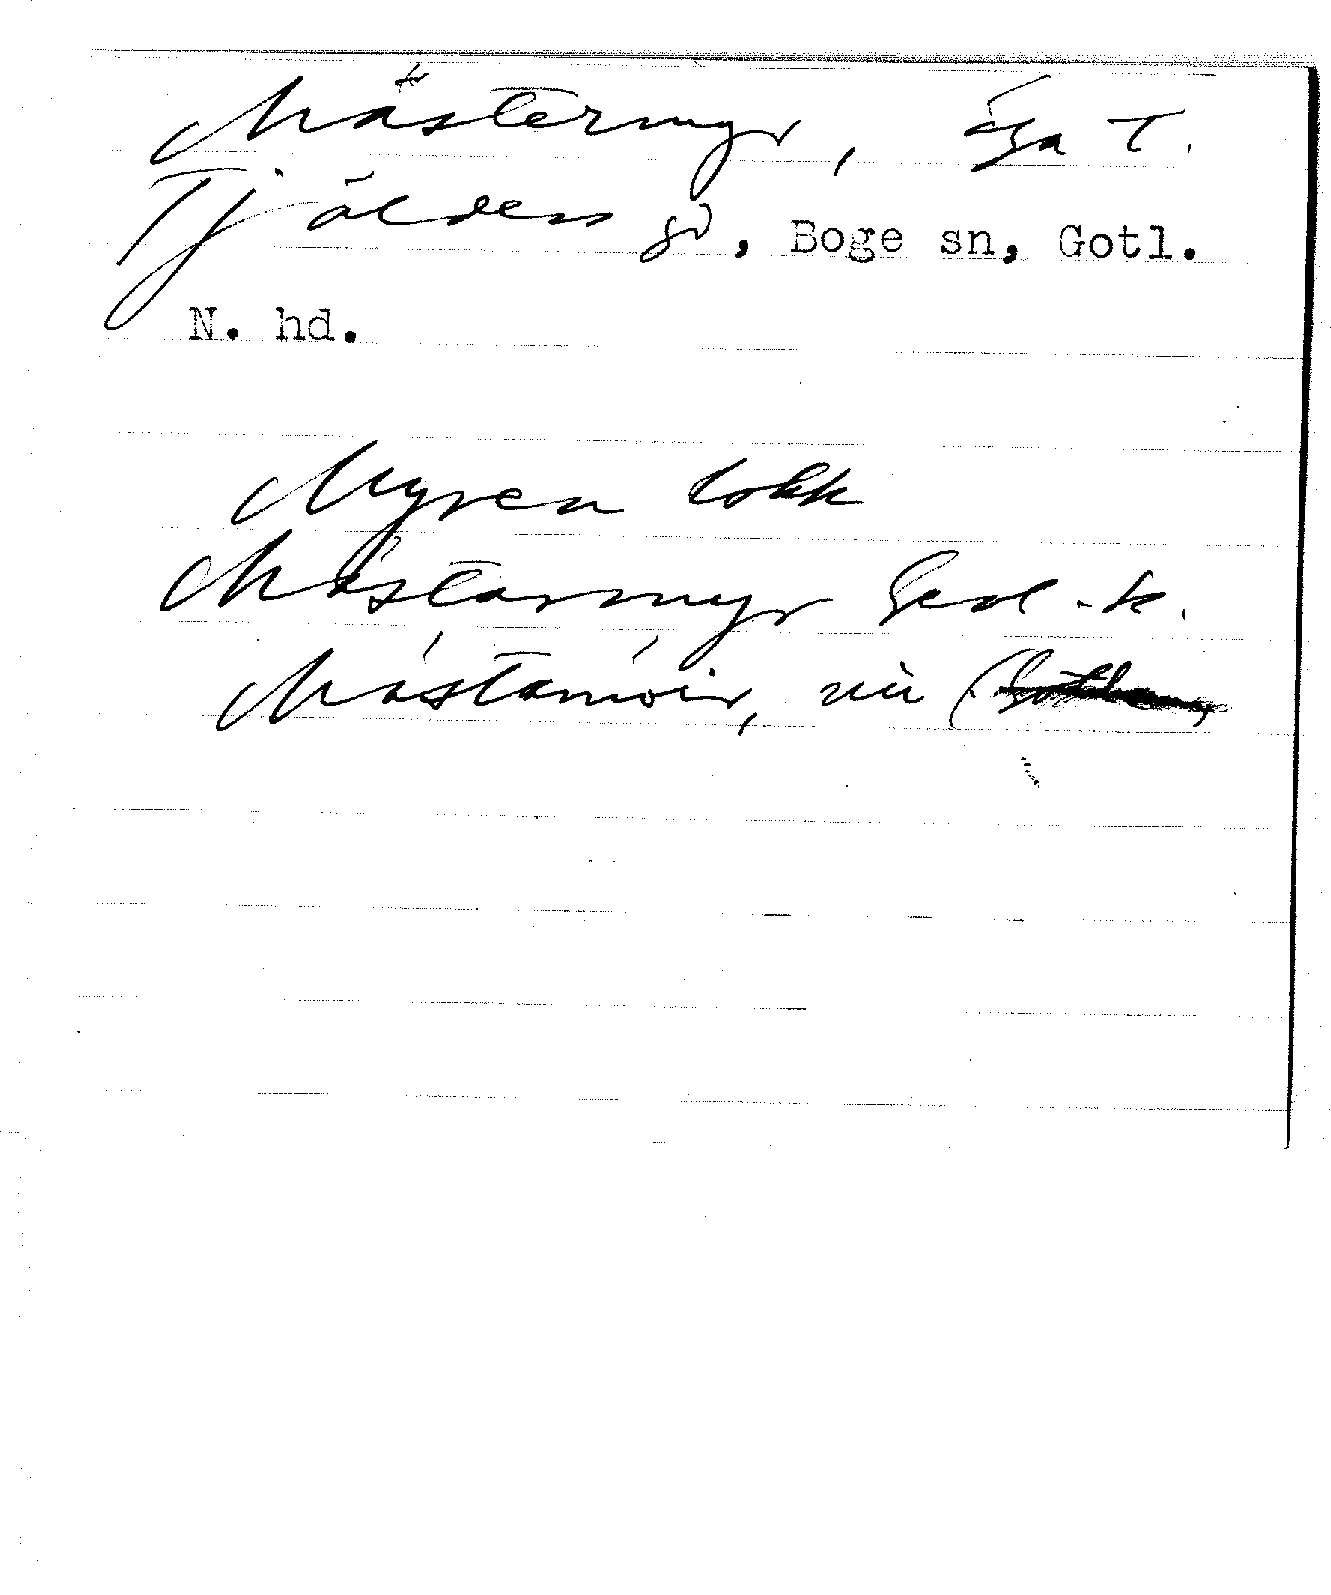 Mästermyr, äga T.
Tjälders gd, Boge sn, Gotl.
N. hd.
Myren lokk
Mästarmyr
Mástamóir, nù